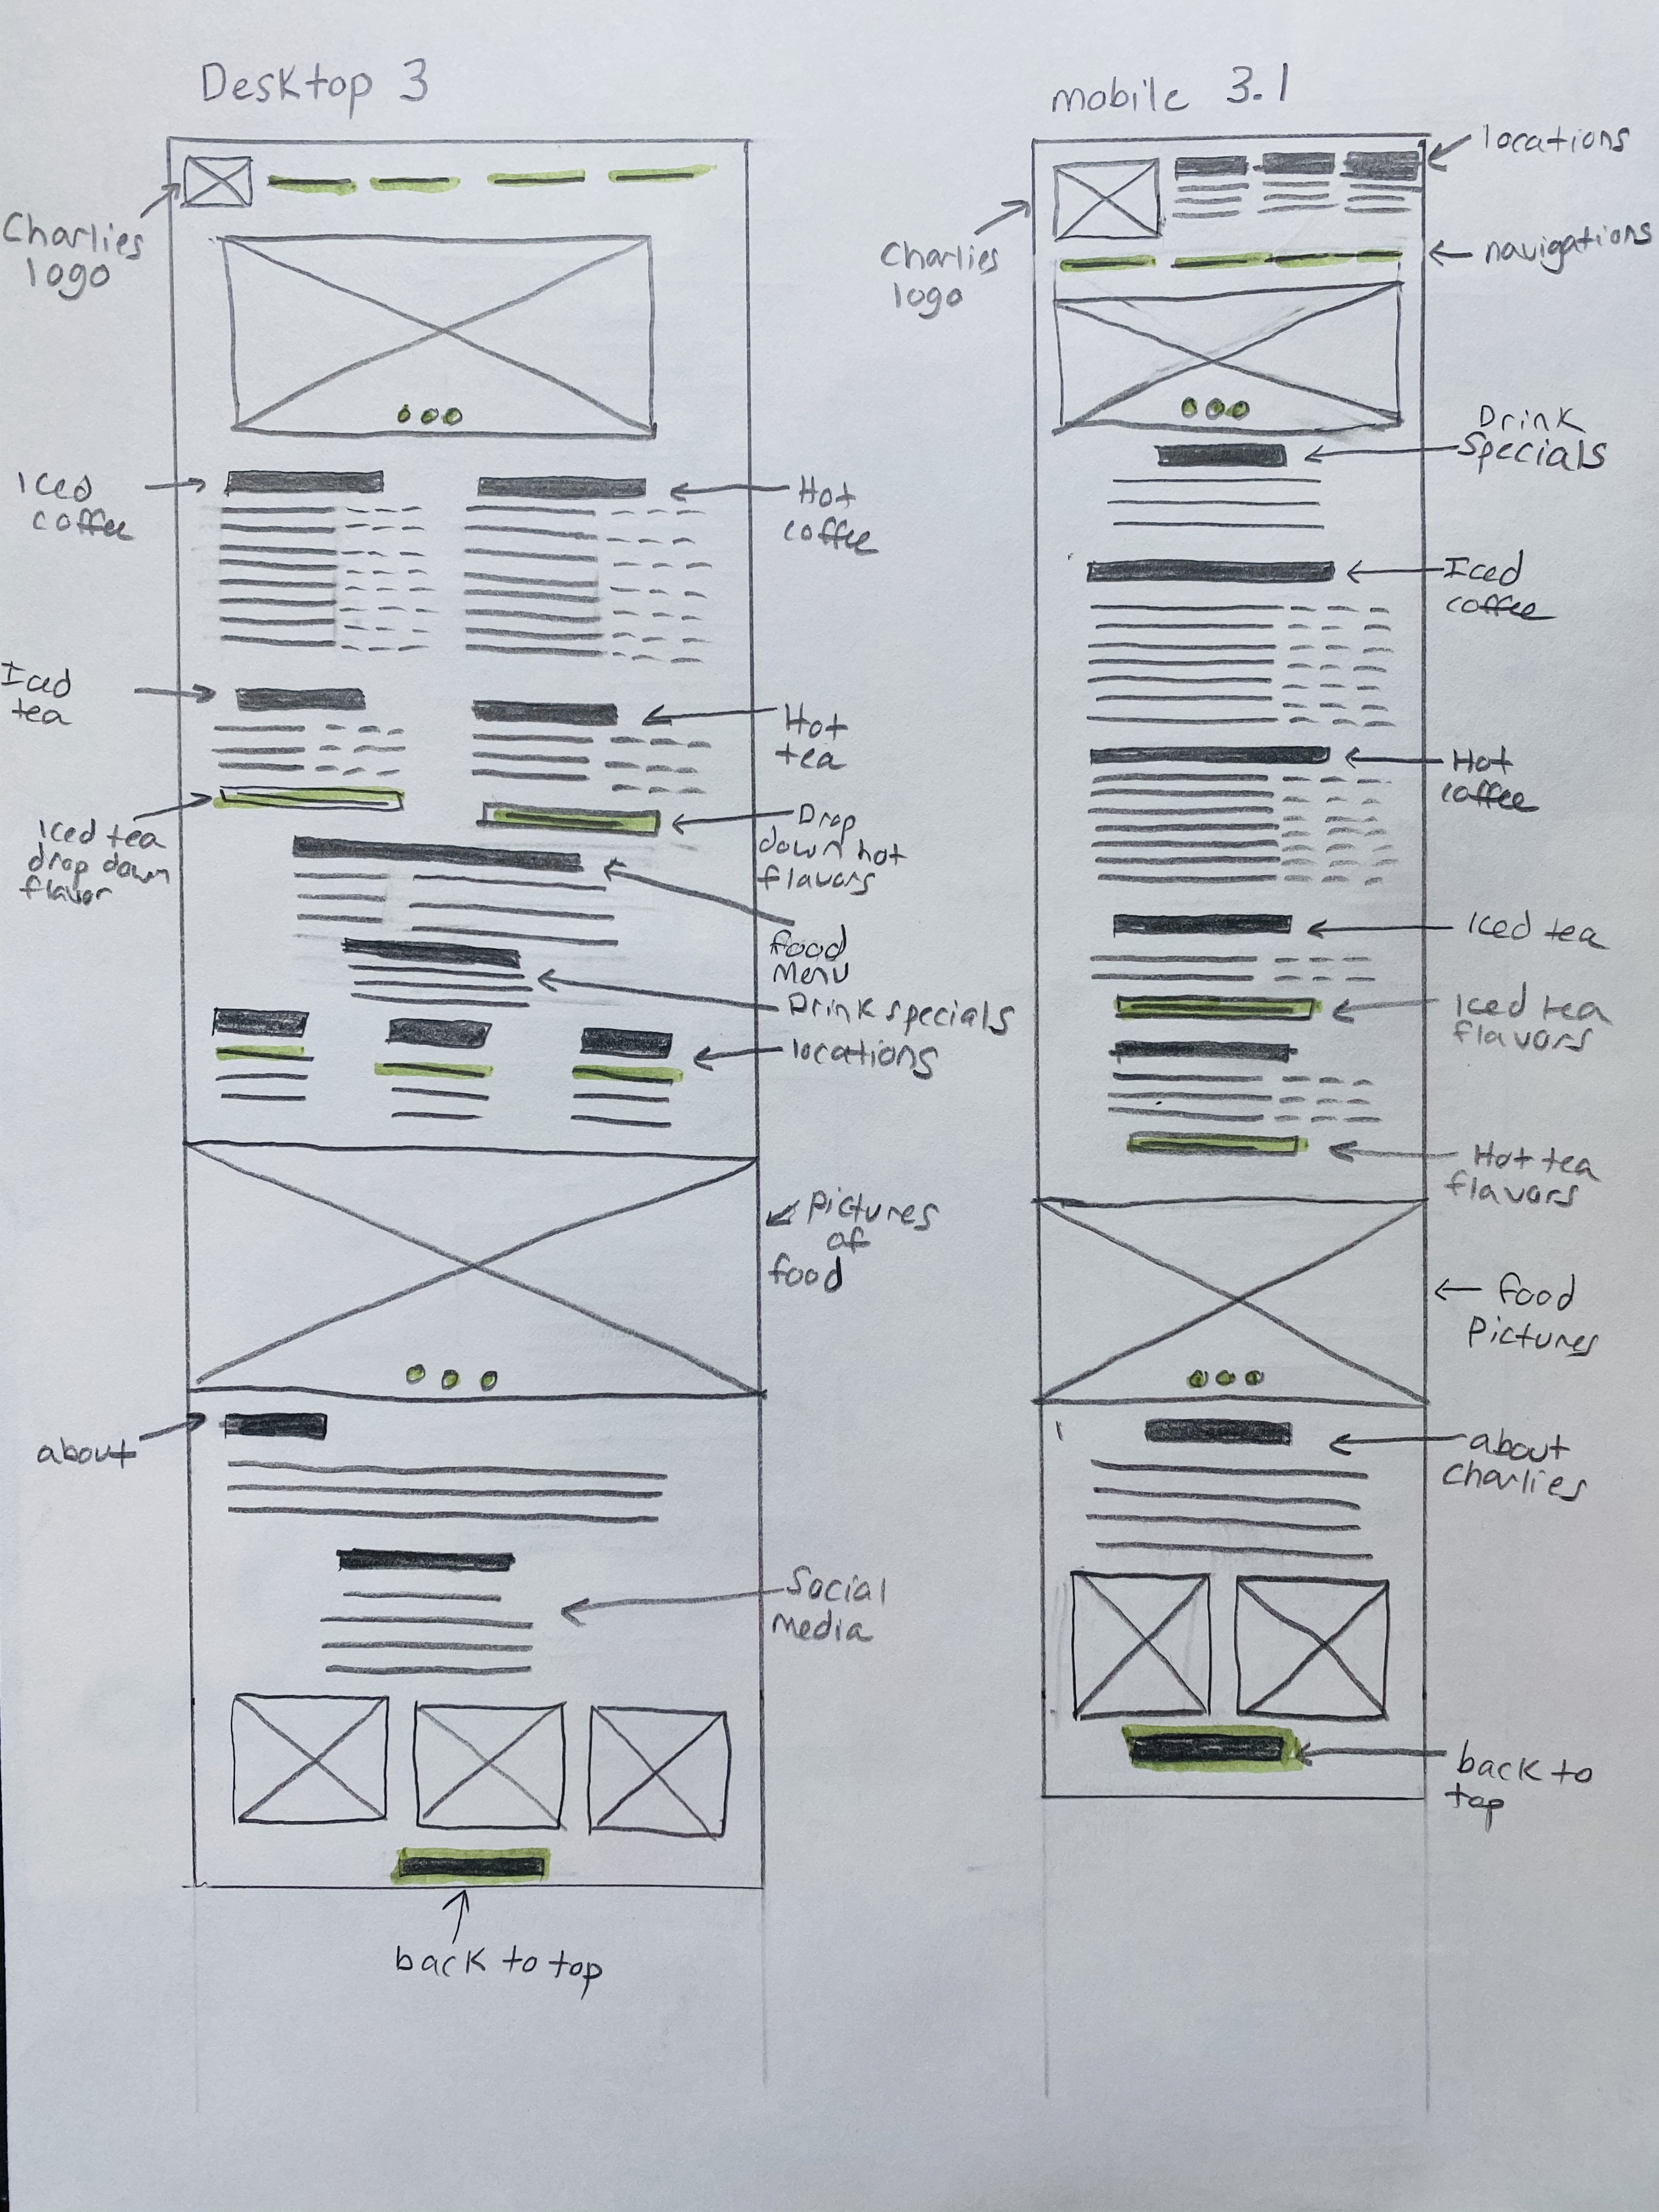 Desktop 3
Charlies
logo
Iced
coffee
Hot
coffee
Iced
tea
Hot
tea
Iced tea
drop down
flavor
Drop
down hot
flavors
food
menu
Drink specials
locations
Pictures
of
food
about
Social
media
back to top
mobile 3.1
locations
Charlies
logo
navigations
Drink
Specials
Iced
coffee
Hot
coffee
Iced tea
Iced tea
flavors
Hot tea
flavors
food
Pictures
about
Charlies
back to
top